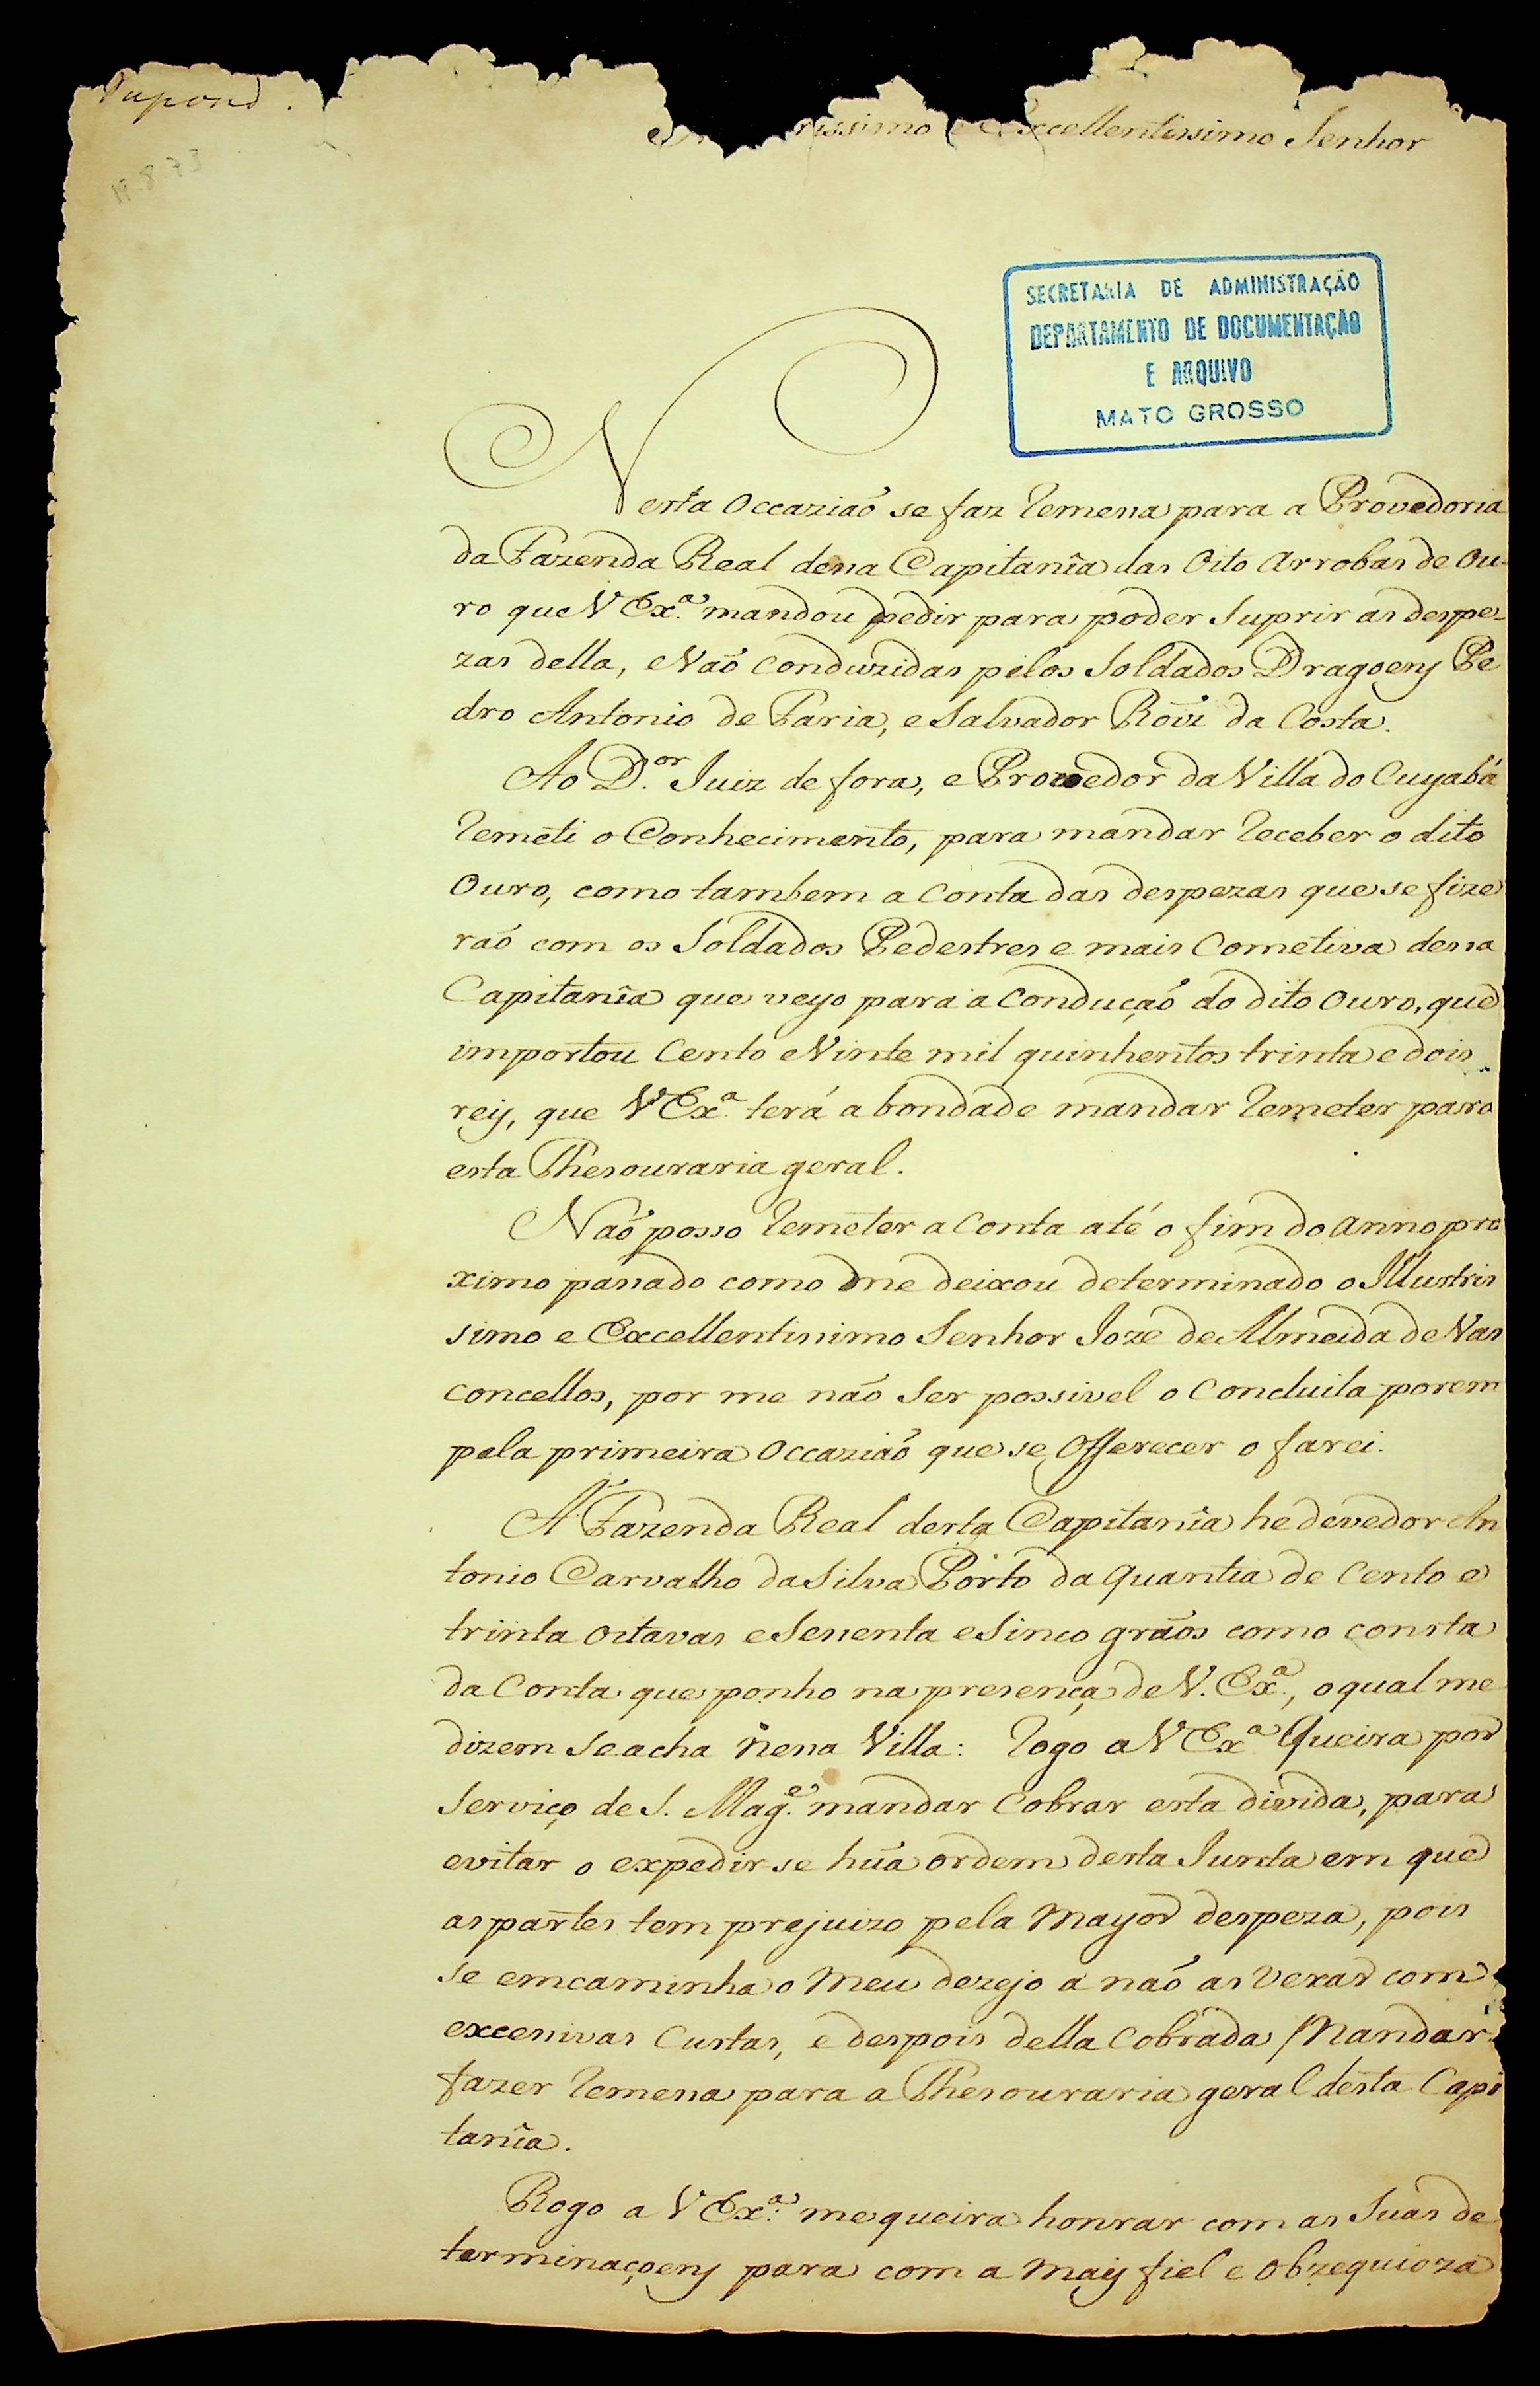 rissimo e Excellentissimo Senhor
19.8.73
SECRETARIA DE ADMINISTRAÇÃO
DEPARTAMENTO DE DOCUMENTAÇÃO
E ARQUIVO
MATO GROSSO
Nesta occaziaõ se faz remessa para a Provedoria
da Fazenda Real dessa Capitanîa das oito arrobas de ou-
ro que V Ex.ª mandou pedir para poder suprir as despe-
zas della, e Vaõ conduzidas pelos Soldados Dragoens Pe
dro Antonio de Faria, e Salvador Roiz da Costa.
Ao D.or Juiz de fora, e Provedor da Villa do Cuyabá
remeti o Conhecimento, para mandar receber o dito
Ouro, como tambem a conta das despezas que se fize
raõ com os Soldados Pedestres e mais Cometiva dessa
Capitanîa que veyo para a conduçaõ do dito ouro, que
importou Cento e Vinte mil quinhentos trinta e dois
reis, que V Ex.ª terá a bondade mandar remeter para
esta Thesouraria geral.
Naõ posso remeter a conta até o fim do anno pro
ximo passado como me deixou determinado o Illustris
simo e Excellentissimo Senhor Joze de Almeida de Vas
concellos, por me naõ ser possivel o concluila porem
pela primeira occaziaõ que se offerecer o farei.
A' Fazenda Real desta Capitanîa he devedor An
tonio Carvalho da Silva Porto da quantia de Cento e
trinta oitavas e Sessenta e Sinco graõs como consta
da Conta que ponho na presença de V. Ex.ª, o qual me
dizem se acha nessa Villa: rogo a V Ex.ª queira por
serviço de S. Mag.e mandar cobrar esta divida, para
evitar o expedirse hũa ordem desta Junta em que
as partes tem prejuizo pela mayor despeza, pois
se emcaminha o meu dezejo a naõ as vexar com
excessivas custas, e despois della cobrada mandar
fazer remessa para a Thesouraria geral desta Capi
tanîa.
Rogo a V Ex.ª me queira honrar com as suas de
terminaçoens para com a mais fiel e obzequioza